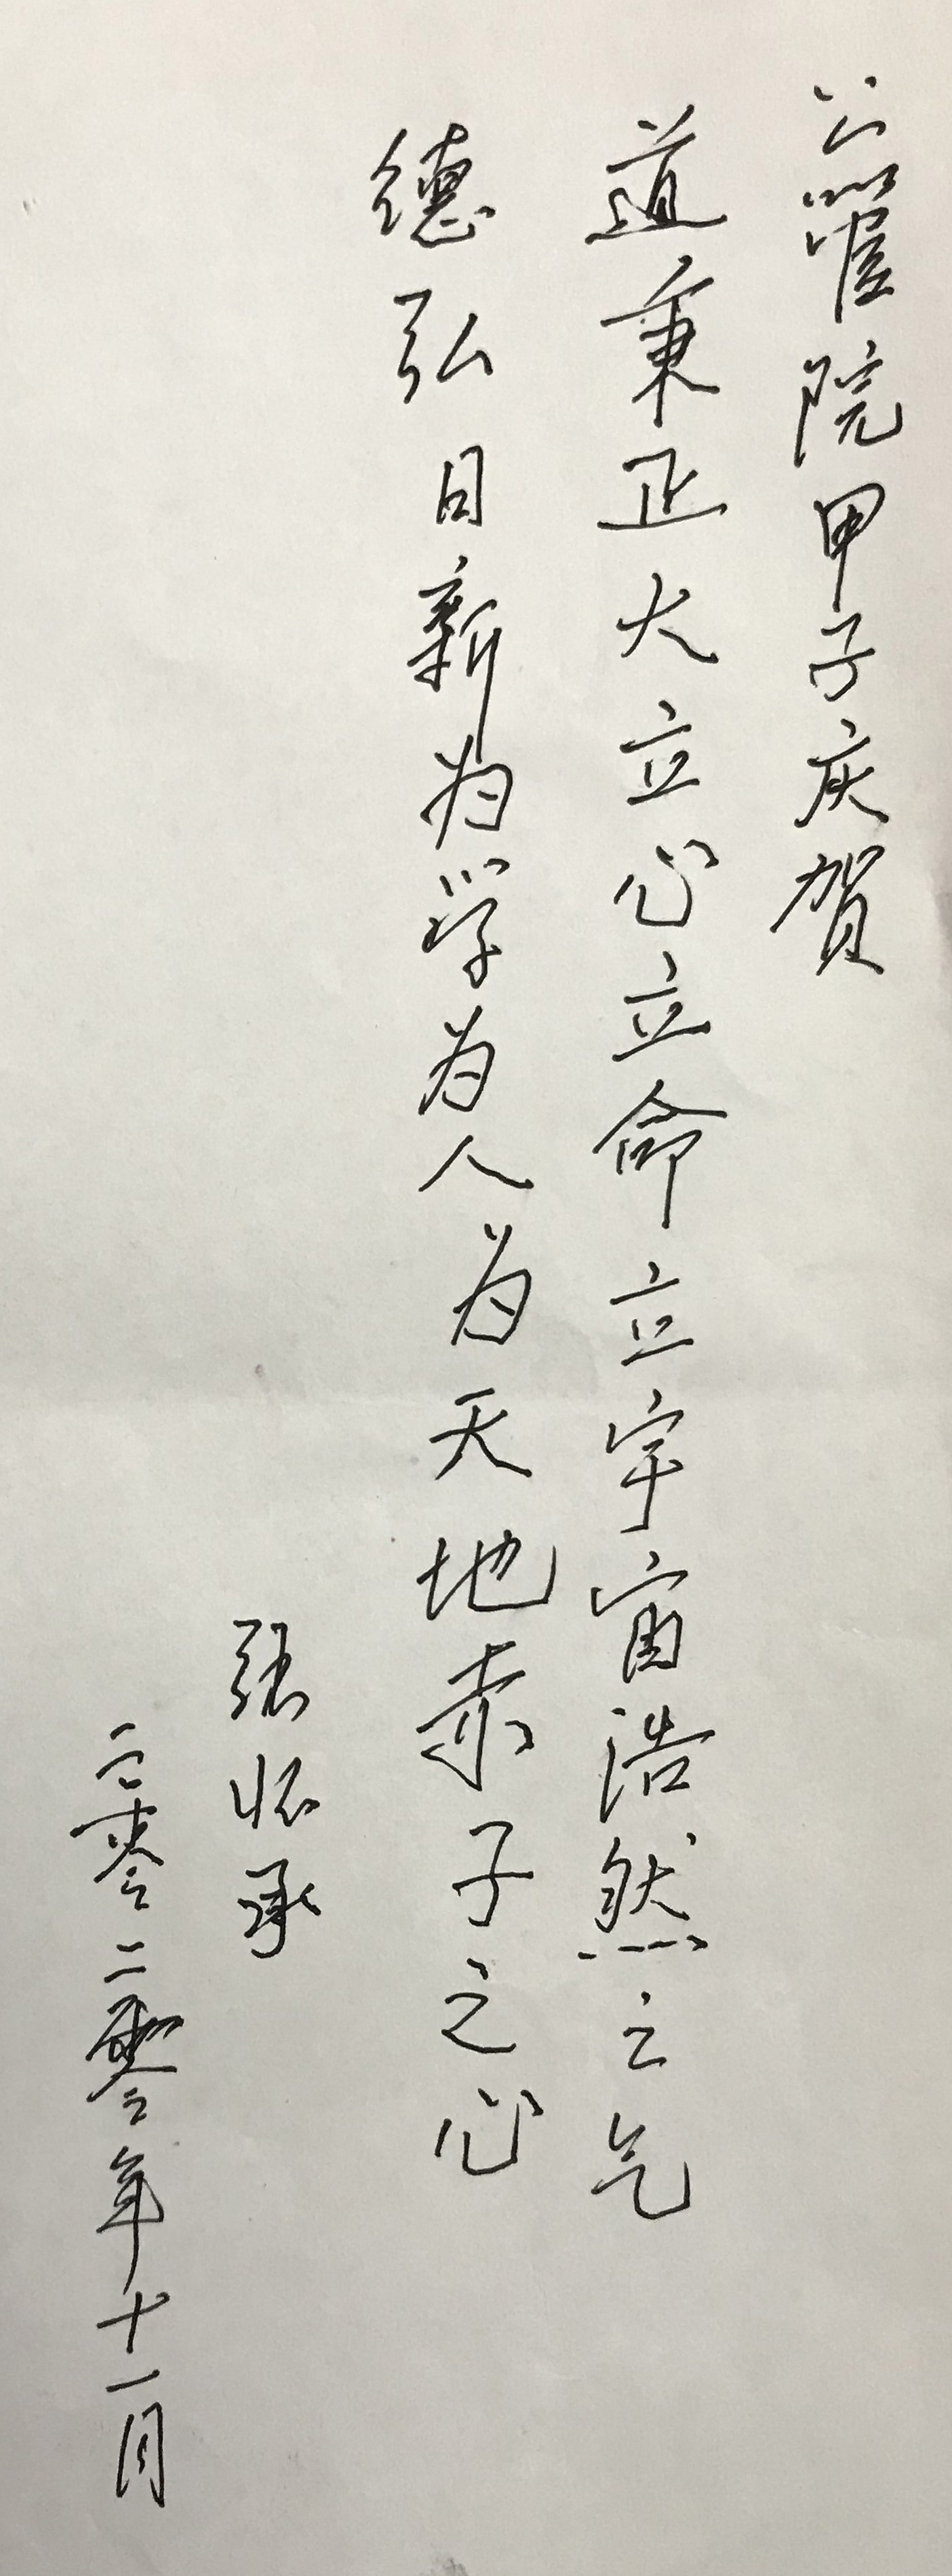 公管院甲子庆贺
道秉正大立心立命立宇宙浩然之气
德弘日新为学为人为天地赤子之心
张怀承
二零二零年十一月